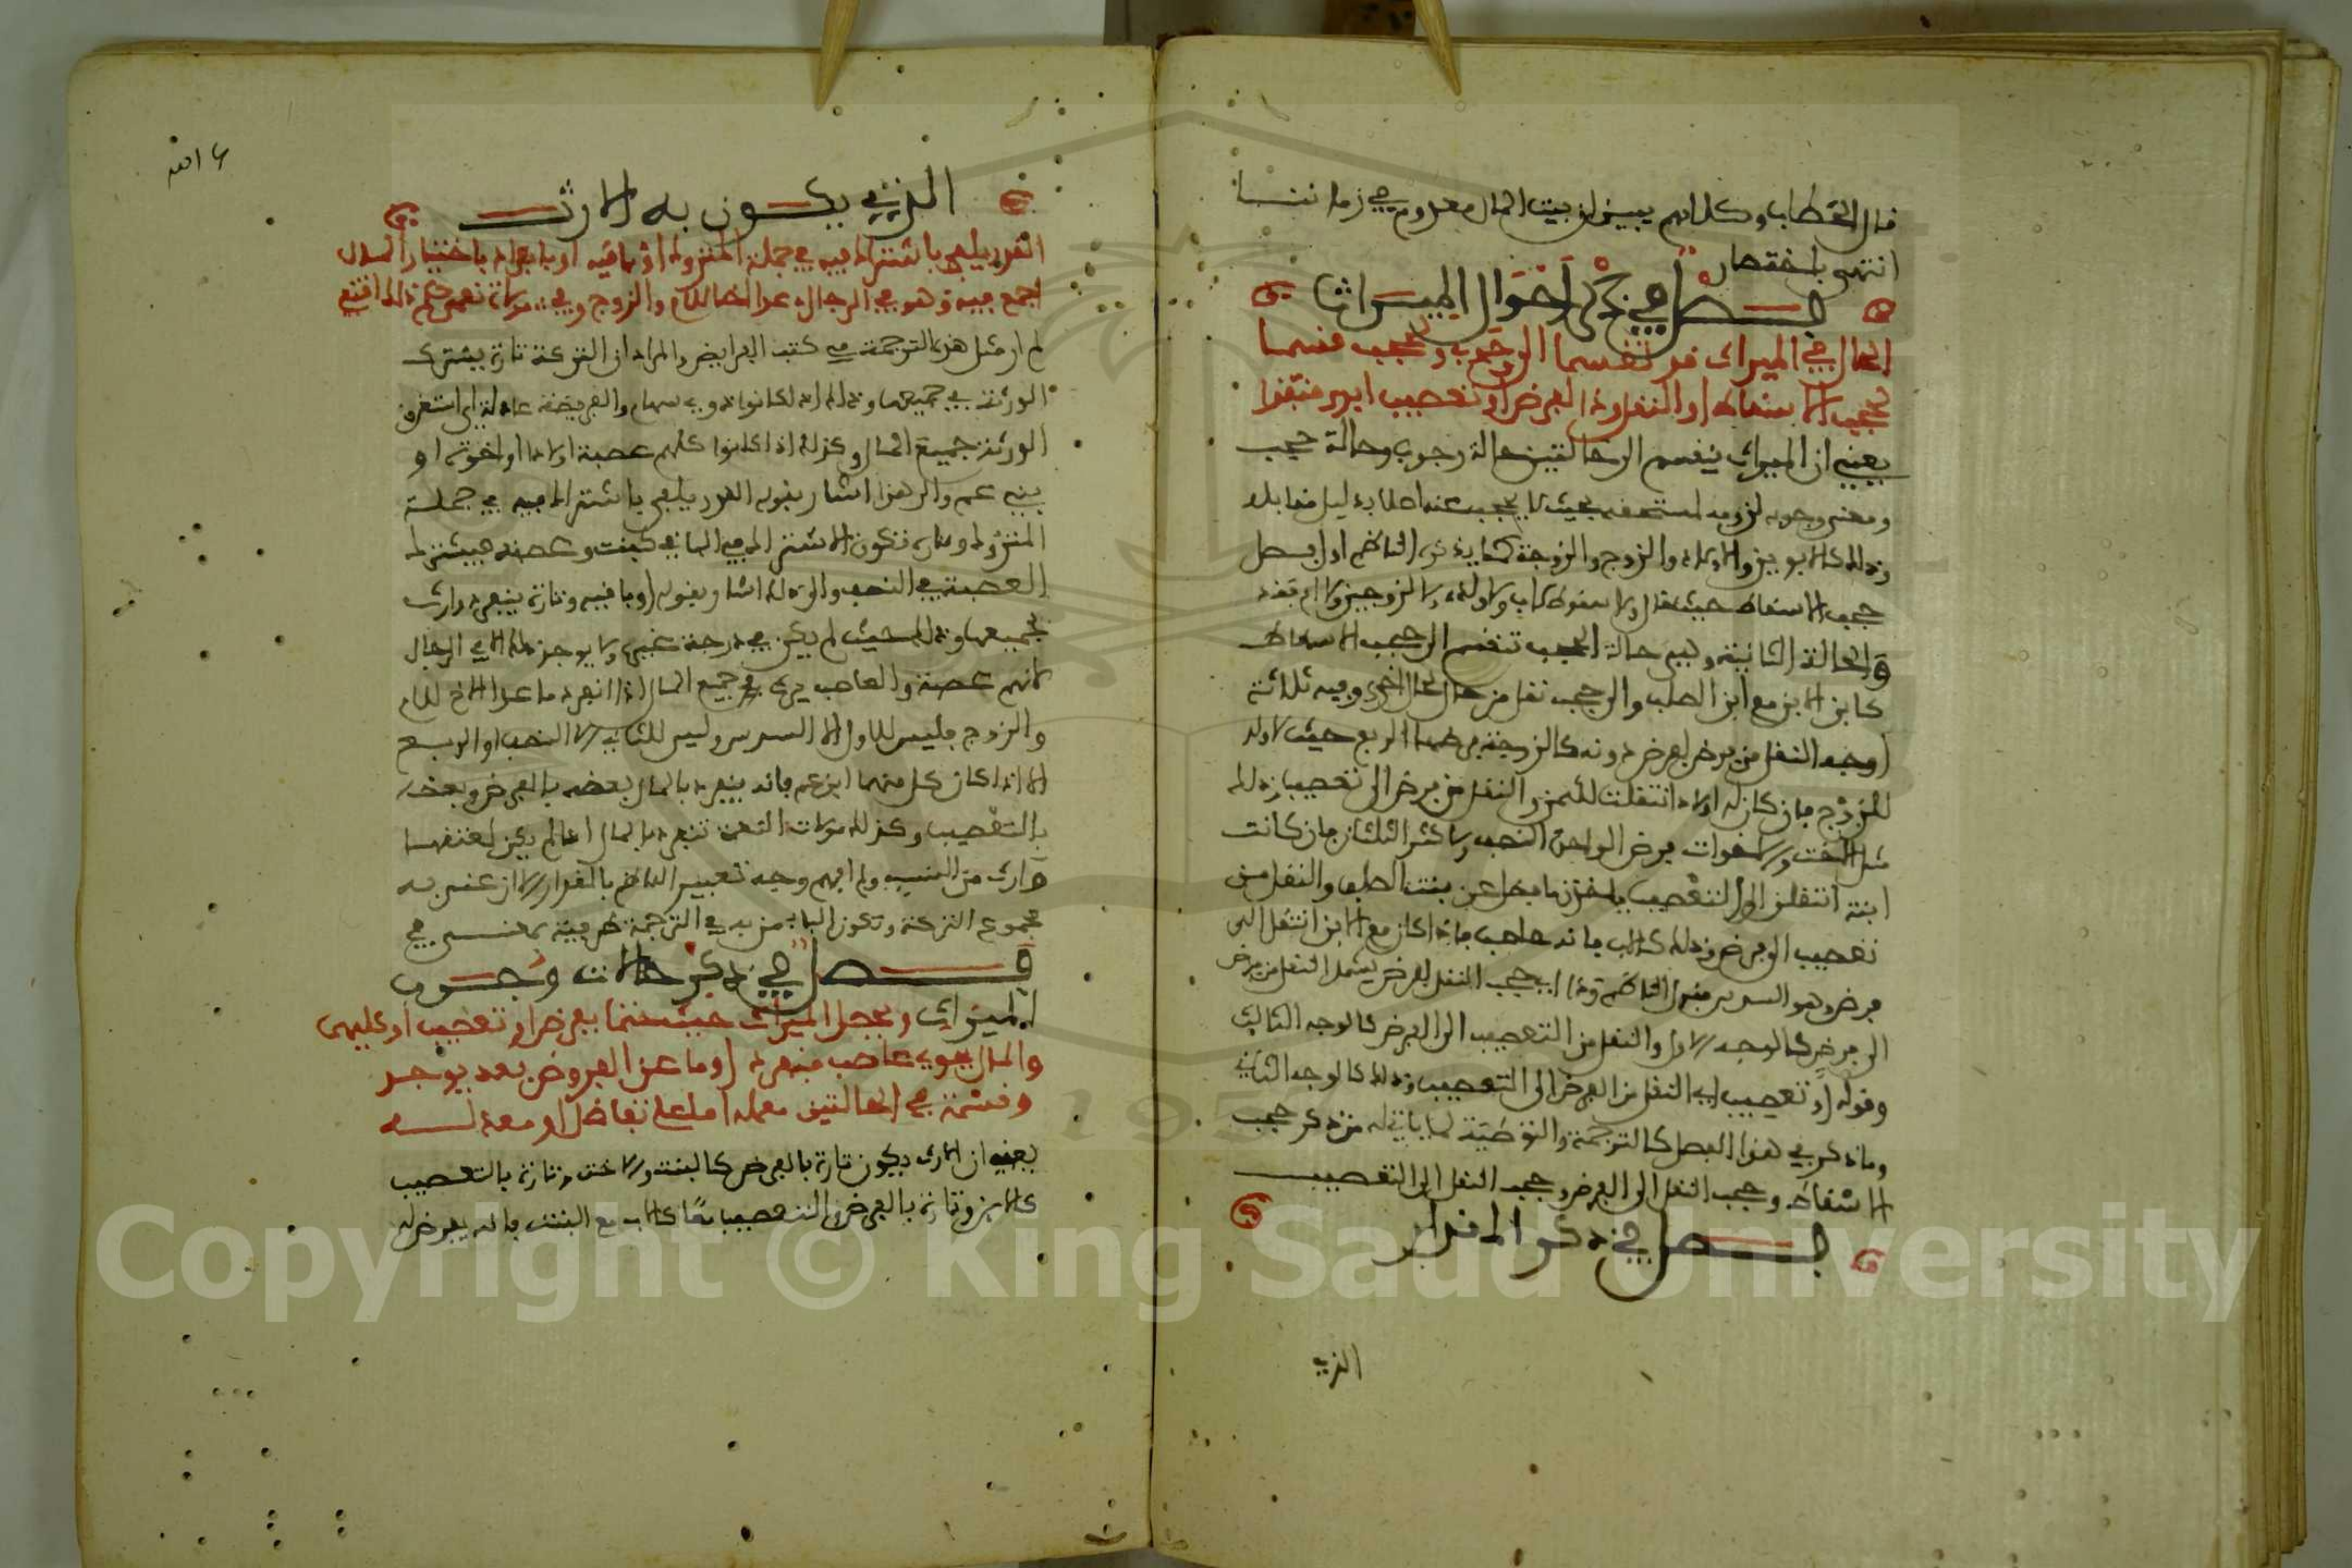 قال الحطاب وكلامهم يبين ان بيت المال معدوم في زماننا
انتهى باختصار
فصل في ذكر احوال الميراث
الحال في الميراث قد تقسما الى وجوب ولحجب قسما
لحجب الاسقاط او النقل وذا لفرض او تعصيب ابدى منقذا
يعني ان الميراث ينقسم الى حالتين حالة وجوب وحالة حجب
ومعنى وجوبه لزومه لمستحقه بحيث لا يحجب عنه اصلا بدليل مقابله
وذلك كالابوين والاولاد والزوج والزوجة كما يذكره الناظم اول فصل
حجب الاسقاط حيث قال ولا سقوط لاب ولا ولد ولا لزوجين ولا ام فقد
والحالة الثانية وهي حالة الحجب تنقسم الى حجب الاسقاط
كابن الابن مع ابن الصلب والى حجب نقل من حال لحال اخرى وفيه ثلاثة
اوجه النقل من فرض لفرض دونه كالزوجة فرضها الربع حيث لا ولد
للزوج فان كان له اولاد انتقلت للثمن والنقل من فرض الى تعصيب وذلك
مثل الاخت والاخوات فرض الواحدة النصف والاكثر الثلثان فان كانت
ابنة انتقلن الى التعصيب فياخذن ما فضل عن بنت الصلب والنقل من
تعصيب الى فرض وذلك كالاب فانه عاصب فاذا كان مع الابن انتقل الى
فرض وهو السدس فقول الناظم وذا اي حجب النقل لفرض يشمل النقل من فرض
الى فرض كالوجه الاول والنقل من التعصيب الى الفرض كالوجه الثالث
وقوله او تعصيب اي النقل من الفرض الى التعصيب وذلك كالوجه الثاني
وما ذكر في هذا الفصل كالترجمة والتوطئة لما ياتي له من ذكر حجب
الاسقاط وحجب النقل الى الفرض وحجب النقل الى التعصيب
فصل في ذكر المقدار
الذي
الذي يكون به الارث
القدر يلفى باشتراك فيه في جملة المتروك او باقيه او بانفراد باختيار المال
اجمع فيه وهو في الرجال عدا اخا للام والزوج وفي مولاة نعمى حكم ذاك اقتفي
لم ار مثل هذه الترجمة في كتب الفرائض والمراد ان التركة تارة يشترك
الورثة في جميعها وذلك اذا كانوا ذوي سهام والفريضة عادلة اي استغرق
الورثة جميع المال وكذلك اذا كانوا كلهم عصبة اولادا او اخوة او
بني عم والى هذا اشار بقوله القدر يلفى باشتراك فيه في جملة
المتروك وتارة تكون الاشتراك في الباقي كبنت وعصبة فيشترك
العصبة في النصف والى ذلك اشار بقوله او باقيه وتارة ينفرد وارث
بجميعها وذلك حيث لم يكن في درجة غيره ولا يوجد ذلك الا في الرجال
لانهم عصبة والعاصب يرث جميع المال اذا انفرد ما عدا الاخ للام
والزوج فليس للاول الا السدس وليس للثاني الا النصف او الربع
الا اذا كان كل منهما ابن عم فانه ينفرد بالمال بعضه بالفرض وبعضه
بالتعصيب وكذلك مولاة النعمة تنفرد بالمال اذا لم يكن لمعتقها
وارث من النسب ولم افهم وجه تعبير الناظم بالمقدار الا ان عنى به
مجموع التركة وتكون الباء من به في الترجمة ظرفية بمعنى في
فصل في ذكر حالات وجوب
الميراث ويحصل الميراث حيث حتما بفرض او تعصيب او كليهما
والمال يحوي عاصب منفرد او ما عن الفروض بعد يوجد
وقسمة في الحالتين معمله اما على تفاضل او معدله
يعني ان الارث يكون تارة بالفرض كالبنت والاخت وتارة بالتعصيب
كالابن وتارة بالفرض والتعصيب معا كالاب مع البنت فانه يفرض له
Copyright © King Saud University
1957